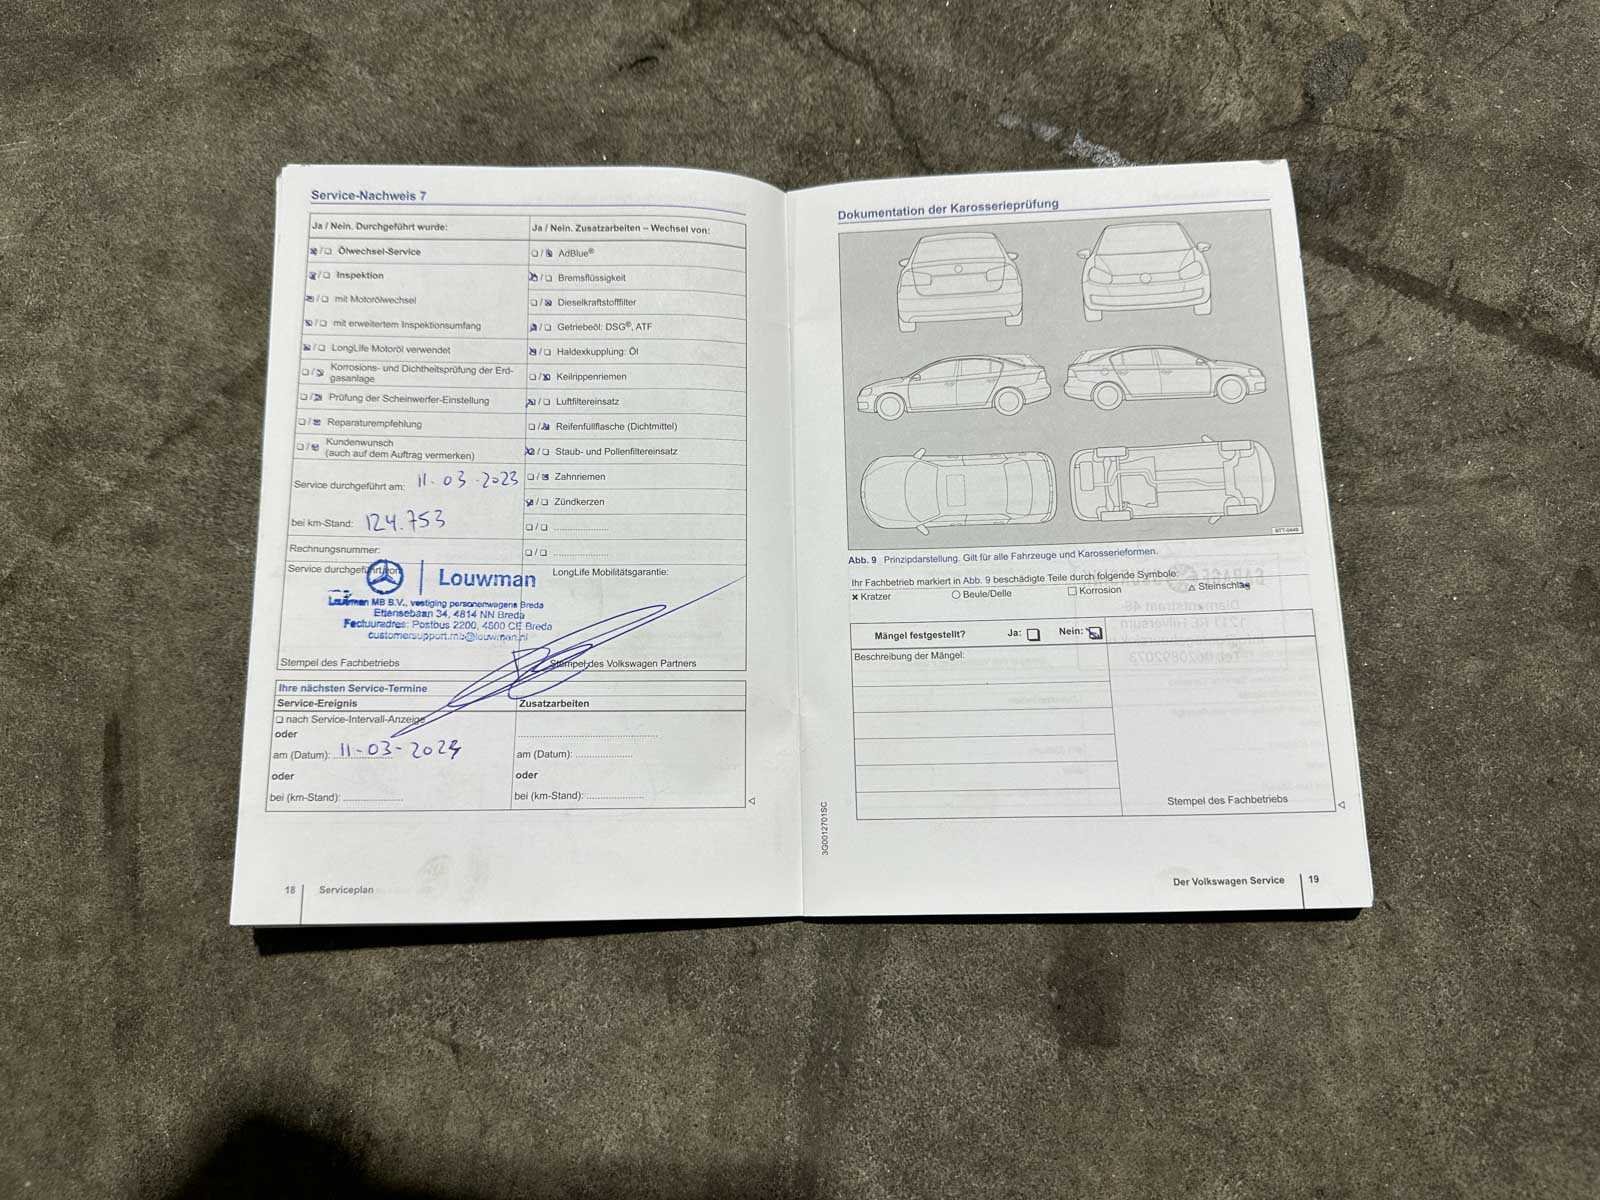 Service-Nachweis 7
Ja / Nein. Durchgeführt wurde:
Ölwechsel-Service
Inspektion
mit Motorölwechsel
mit erweitertem Inspektionsumfang
LongLife Motoröl verwendet
Korrosions- und Dichtheitsprüfung der Erd-
gasanlage
Prüfung der Scheinwerfer-Einstellung
Reparaturempfehlung
Kundenwunsch
(auch auf dem Auftrag vermerken)
Service durchgeführt am: 11-03-2023
bei km-Stand: 124.753
Rechnungsnummer:
Service durchgeführt von:
Louwman
Louwman MB B.V., vestiging personenwagens Breda
Ettensebaan 34, 4814 NN Breda
Factuuradres: Postbus 2200, 4800 CE Breda
customersupport.mb@louwman.nl
Stempel des Fachbetriebs
Ja / Nein. Zusatzarbeiten – Wechsel von:
AdBlue®
Bremsflüssigkeit
Dieselkraftstofffilter
Getriebeöl: DSG®, ATF
Haldexkupplung: Öl
Keilrippenriemen
Luftfiltereinsatz
Reifenfüllflasche (Dichtmittel)
Staub- und Pollenfiltereinsatz
Zahnriemen
Zündkerzen
LongLife Mobilitätsgarantie:
Stempel des Volkswagen Partners
Ihre nächsten Service-Termine
Service-Ereignis
nach Service-Intervall-Anzeige
oder
am (Datum): 11-03-2024
oder
bei (km-Stand):
Zusatzarbeiten
am (Datum):
oder
bei (km-Stand):
18 Serviceplan
Dokumentation der Karosserieprüfung
Abb. 9 Prinzipdarstellung. Gilt für alle Fahrzeuge und Karosserieformen.
Ihr Fachbetrieb markiert in Abb. 9 beschädigte Teile durch folgende Symbole:
Kratzer Beule/Delle Korrosion Steinschlag
Mängel festgestellt? Ja: Nein:
Beschreibung der Mängel:
Stempel des Fachbetriebs
3G0012701SC
Der Volkswagen Service 19